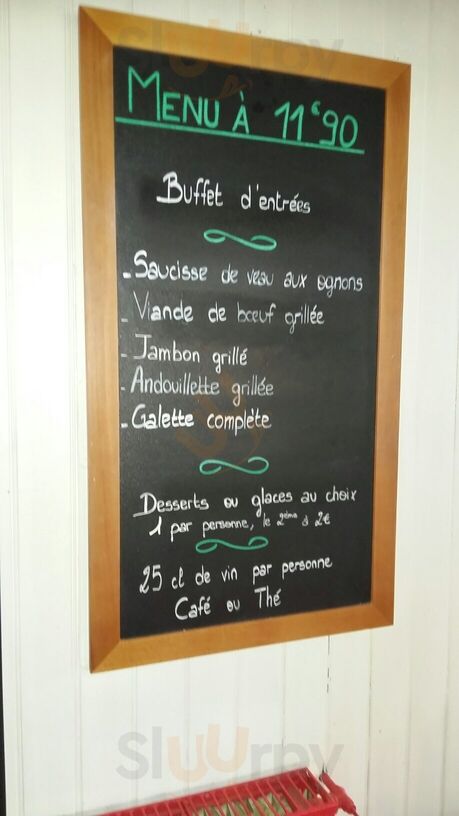 MENU À 11€90
Buffet d'entrées
- Saucisse de veau aux ognons
- Viande de bœuf grillée
- Jambon grillé
- Andouillette grillée
- Galette complète
Desserts ou glaces au choix
1 par personne, le 2ème à 2€
25 cl de vin par personne
Café ou Thé
Sluurpy
Sluurpy